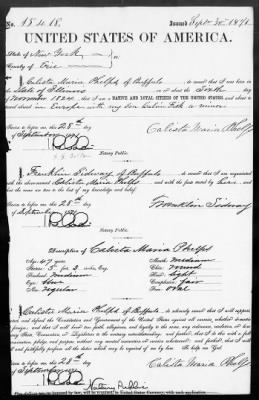 No. 15418. Issued Sept 30" 1871
UNITED STATES OF AMERICA.
State of New York
County of Erie
I Calista Maria Phelps of Buffalo do swear that I was born in the
State of Illinois on or about the day of
November 1824 that I am a NATIVE AND LOYAL CITIZEN OF THE UNITED STATES, and about to travel
abroad in Europe with my son a minor
Sworn to before me, this 28th day
of September 1871 Calista Maria Phelps
Notary Public.
I Franklin Sidway of Buffalo do swear that I am acquainted
with the above-named Calista Maria Phelps and with the facts stated by her and
that the same are true to the best of my knowledge and belief.
Sworn to before me, this 28th day
of September 1871 Franklin Sidway
Notary Public.
Description of Calista Maria Phelps
Age: 47 years Mouth: medium
Stature: 5 feet 2 inches, Eng. Chin: round
Forehead: medium Hair: light
Eyes: blue Complexion: fair
Nose: regular Face: Oval
I Calista Maria Phelps of Buffalo do solemnly swear that I will support,
protect and defend the Constitution and Government of the United States against all enemies, whether domestic
or foreign; and that I will bear true faith, allegiance and loyalty to the same, any ordinance, resolution, or law
of any State, Convention, or Legislature to the contrary notwithstanding; and further, that I do this with a full
determination, pledge and purpose, without any mental reservation or evasion whatsoever; and further, that I will
well and faithfully perform all the duties which may be required of me by law. So help me God.
Sworn to before me, this 28th day
of September 1871 Calista Maria Phelps
Notary Public